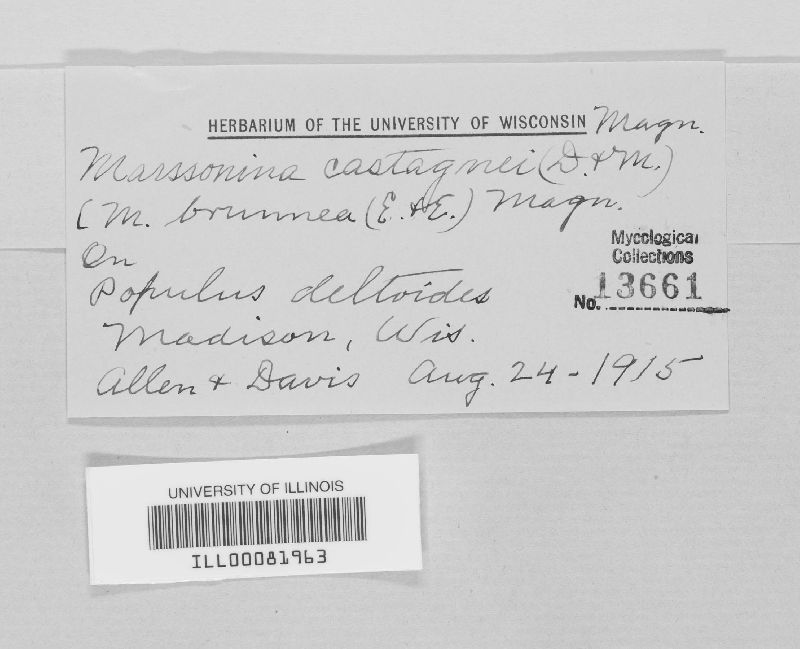 HERBARIUM OF THE UNIVERSITY OF WISCONSIN Magn.
Marssonina castagnei (D. & M.)
( M. brunnea (E. & E.) Magn.
On
Populus deltoides
Madison, Wis.
Allen & Davis Aug. 24 - 1915
Mycological
Collections
No. 13661
UNIVERSITY OF ILLINOIS
ILL00081963